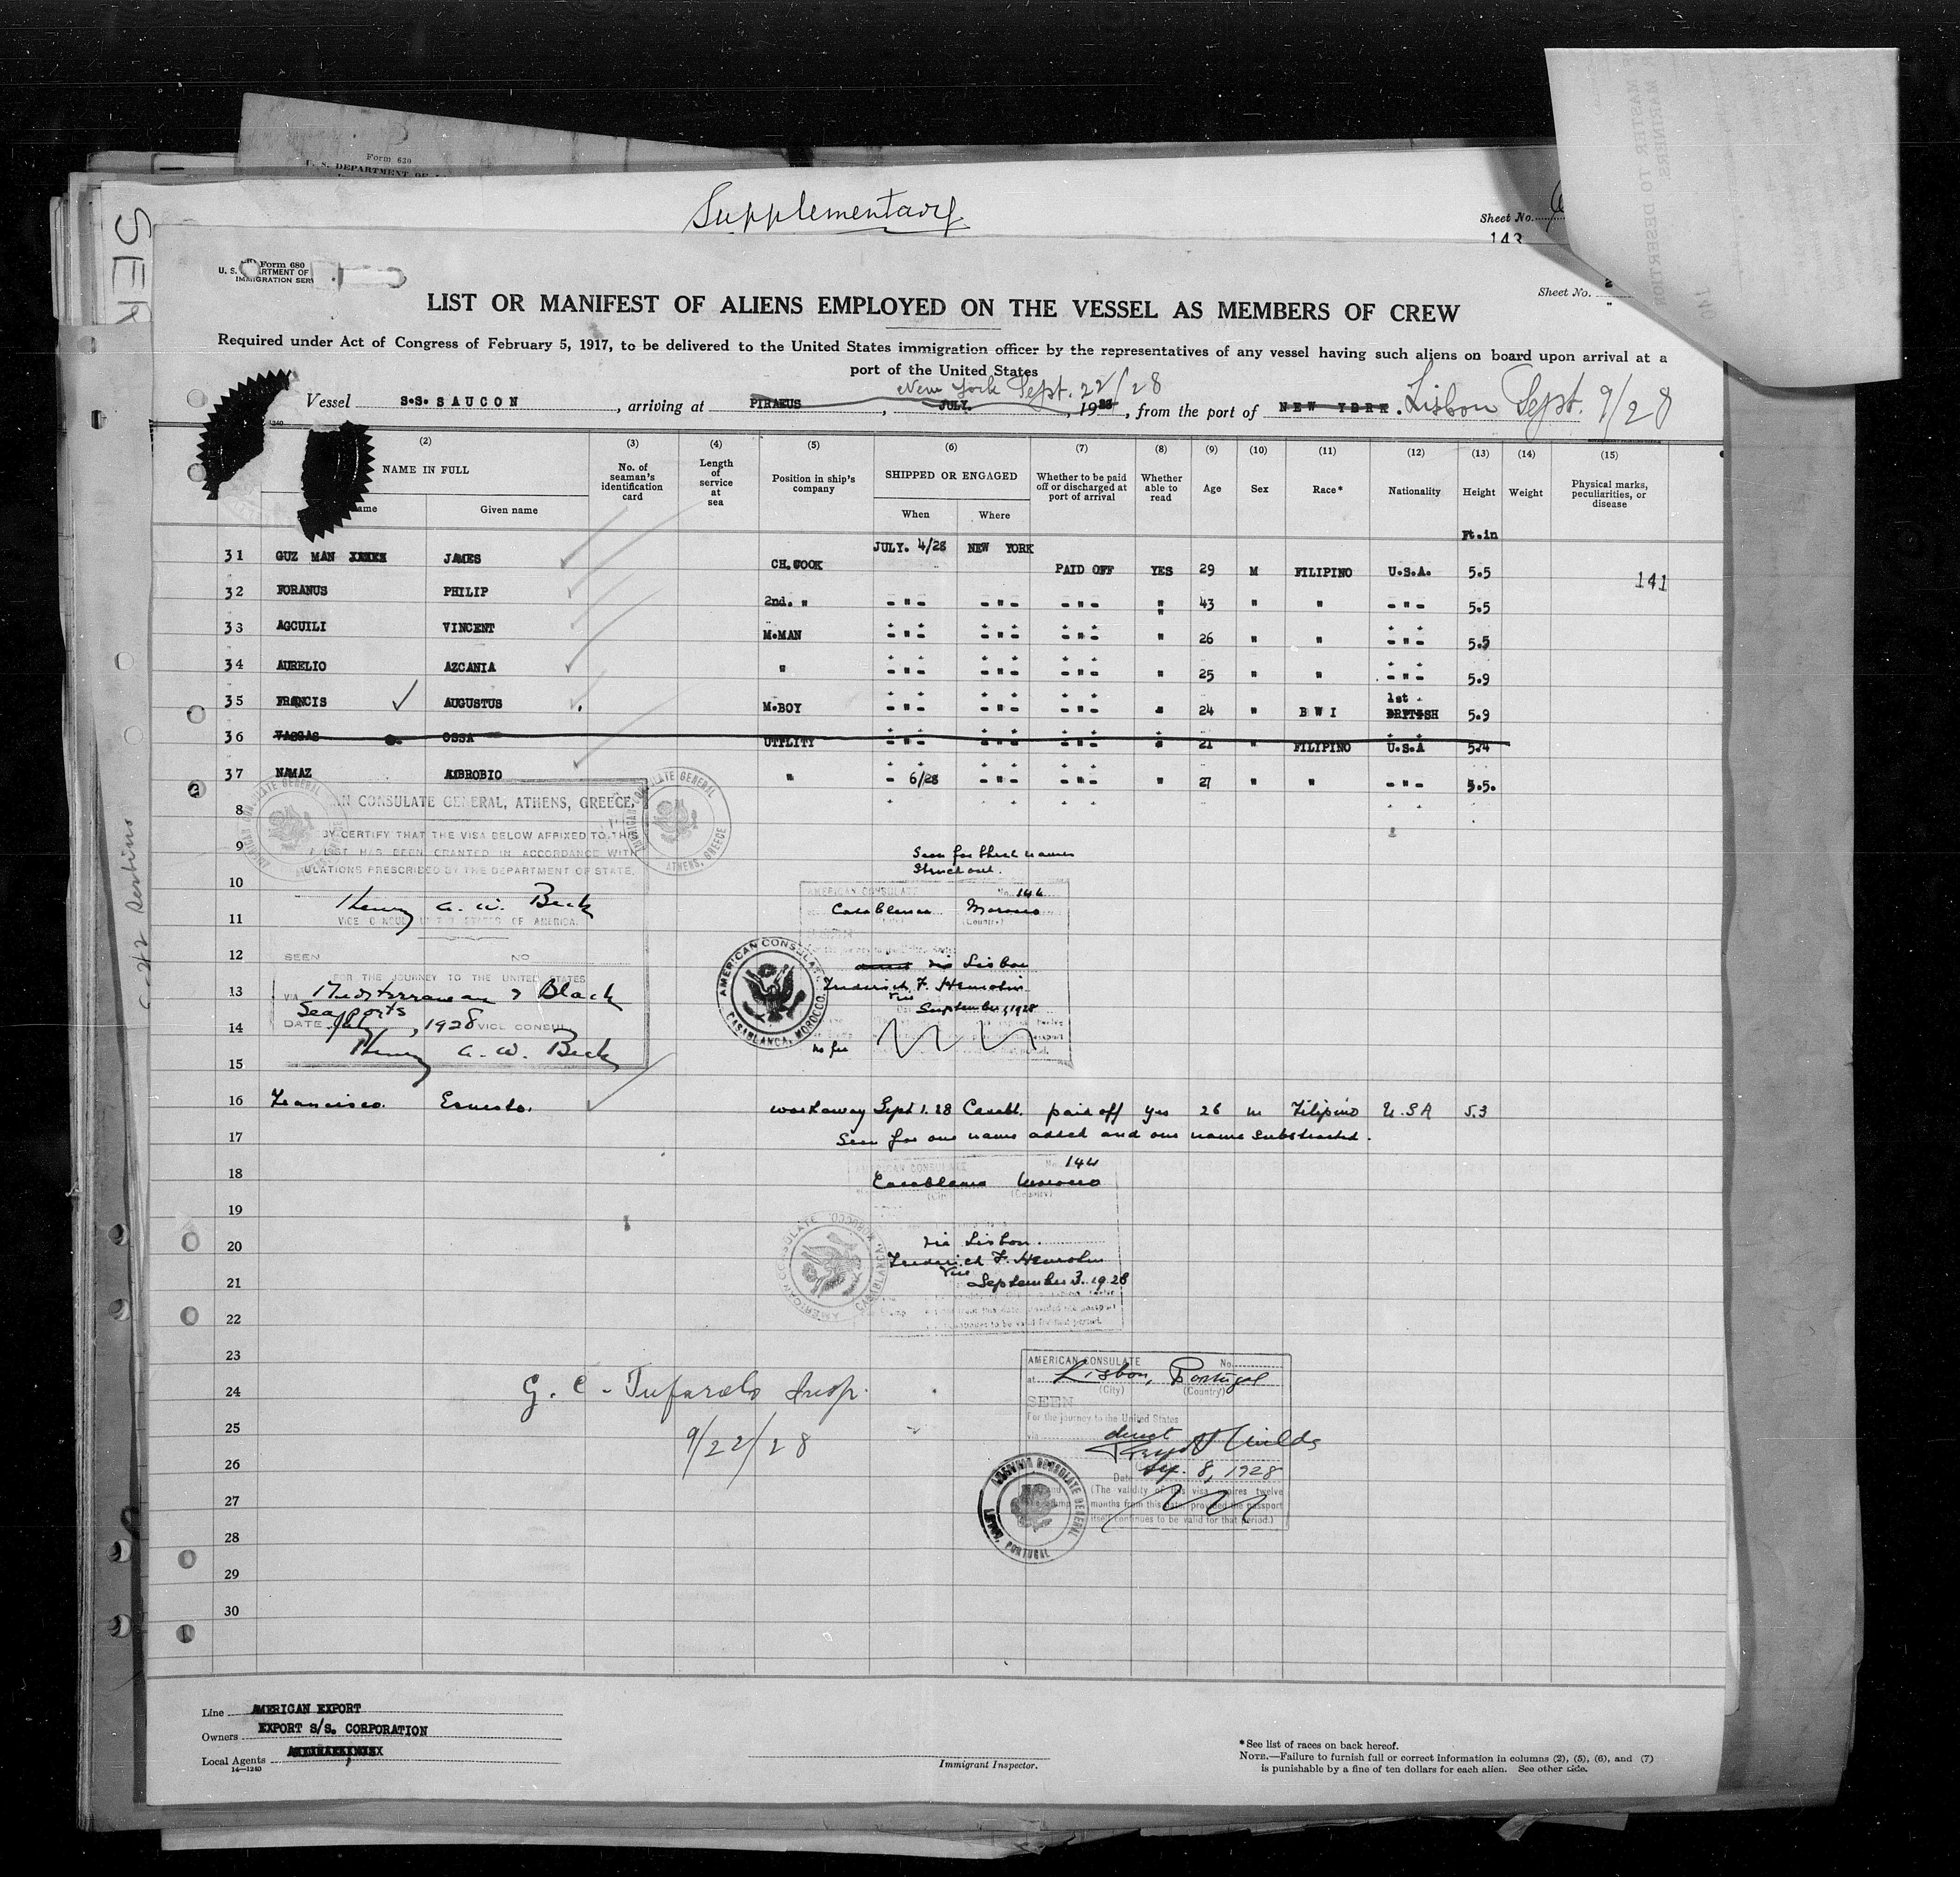 Form 630
U. S. DEPARTMENT OF
Supplementary
Sheet No.
143
Form 680
U. S. DEPARTMENT OF
IMMIGRATION SERV
Sheet No.
LIST OR MANIFEST OF ALIENS EMPLOYED ON THE VESSEL AS MEMBERS OF CREW
Required under Act of Congress of February 5, 1917, to be delivered to the United States immigration officer by the representatives of any vessel having such aliens on board upon arrival at a
port of the United States
New York Sept. 22/28
Vessel S.S. SAUCON, arriving at PIRAEUS, JULY. , 1928, from the port of NEW YORK. Lisbon Sept. 9/28
(2) (3) (4) (5) (6) (7) (8) (9) (10) (11) (12) (13) (14) (15)
NAME IN FULL
Given name
No. of seaman's identification card
Length of service at sea
Position in ship's company
SHIPPED OR ENGAGED
When Where
Whether to be paid off or discharged at port of arrival
Whether able to read
Age Sex Race* Nationality Height Weight
Physical marks, peculiarities, or disease
Ft.in
31 GUZ MAN JAMES CH.COOK JULY. 4/28 NEW YORK PAID OFF YES 29 M FILIPINO U.S.A. 5.5 141
32 FORANUS PHILIP 2nd. " - " - - " - - " - " 43 " " - " - 5.5
33 AGCUILI VINCENT M.MAN - " - - " - - " - " 26 " " - " - 5.5
34 AURELIO AZCANIA " - " - - " - - " - " 25 " " - " - 5.9
35 FRANCIS AUGUSTUS M.BOY - " - - " - - " - " 24 " B W I 1st BRITISH 5.9
36 VASGAS OSSA UTILITY - " - - " - - " - " 21 " FILIPINO U.S.A 5.4
37 NAMAZ AMBROBIO " - 6/28 - " - - " - " 27 " " - " - 5.5.
8
AN CONSULATE GENERAL, ATHENS, GREECE,
BY CERTIFY THAT THE VISA BELOW AFFIXED TO THE
LIST HAS BEEN GRANTED IN ACCORDANCE WITH
ULATIONS PRESCRIBED BY THE DEPARTMENT OF STATE.
Henry A. W. Beck
VICE CONSUL UNITED STATES OF AMERICA.
AMERICAN CONSULATE GENERAL
ATHENS, GREECE
9
Seen for three names
Struck out.
10
AMERICAN CONSULATE No. 144
Casablanca Morocco
(Country)
11
12
SEEN NO
FOR THE JOURNEY TO THE UNITED STATES
VIA Mediterranean & Black
Sea ports
DATE July, 1928 VICE CONSUL
Henry A. W. Beck
13
14
15
AMERICAN CONSULATE
CASABLANCA, MOROCCO.
via Lisbon
September, 1928
No fee
16 Francisco. Ernesto. workaway Sept 1. 28 Casabl. paid off yes 26 m Filipino U.SA 5.3
17 Seen for one name added and one name substracted.
AMERICAN CONSULATE No. 144
18 Casablanca Morocco
(City) (Country)
19
20 via Lisbon.
21 September 3. 1928
22
AMERICAN CONSULATE CASABLANCA, MOROCCO.
23
AMERICAN CONSULATE No.
at Lisbon, Portugal
(City) (Country)
SEEN
For the journey to the United States
via direct
Sep. 8, 1928
(The validity of this visa expires twelve
months from this date provided the passport
itself continues to be valid for that period.)
AMERICAN CONSULATE GENERAL
LISBON, PORTUGAL
24 G. C. Tufarolo Insp.
25 9/22/28
26
27
28
29
30
Line AMERICAN EXPORT
Owners EXPORT S/S. CORPORATION
Local Agents
14—1240
Immigrant Inspector.
*See list of races on back hereof.
NOTE.—Failure to furnish full or correct information in columns (2), (5), (6), and (7)
is punishable by a fine of ten dollars for each alien. See other side.